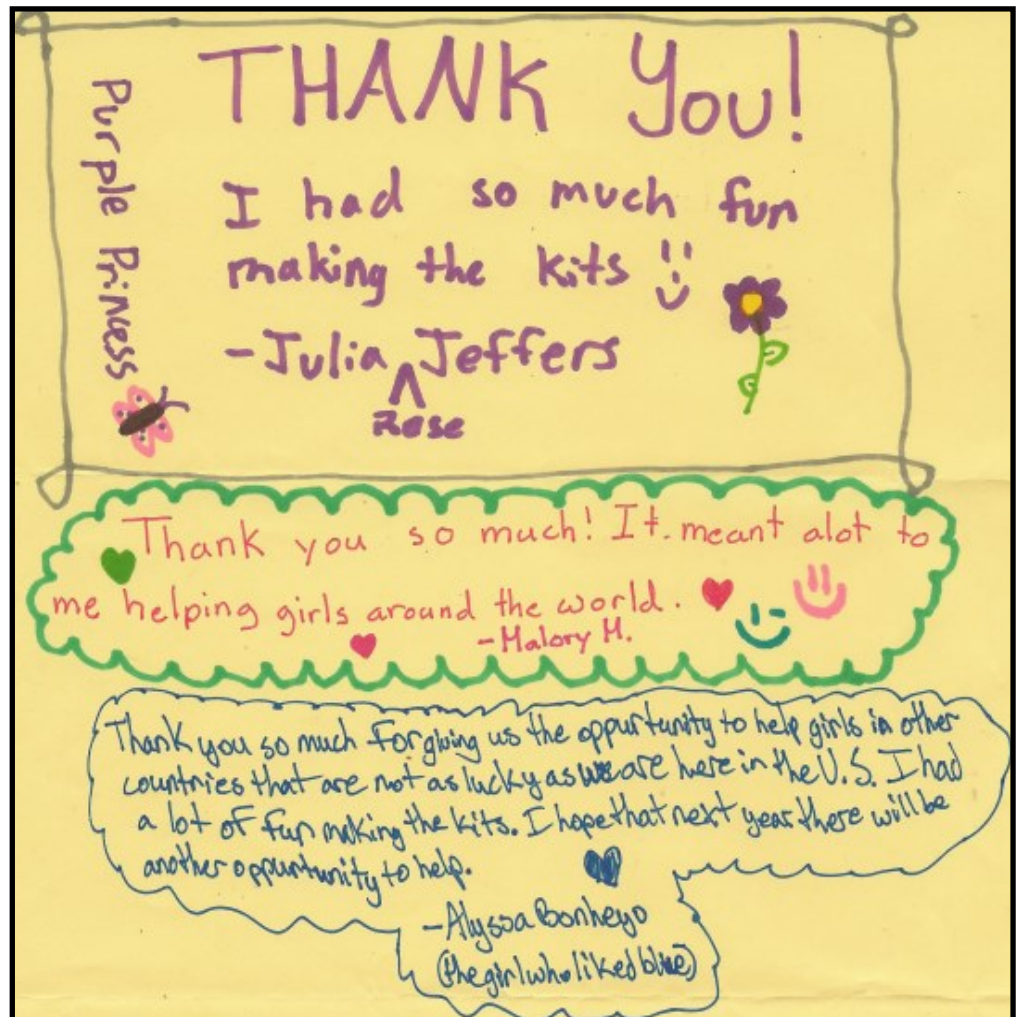 THANK You!
Purple Princess
I had so much fun
making the kits
-Julia ^ Jeffers
Rose
Thank you so much! It meant alot to
me helping girls around the world.
-Malory M.
Thank you so much for giving us the oppurtunity to help girls in other
countries that are not as lucky as we are here in the U.S. I had
a lot of fun making the kits. I hope that next year there will be
another oppurtunity to help.
-Alyssa Bonheyo
(the girl who liked blue)